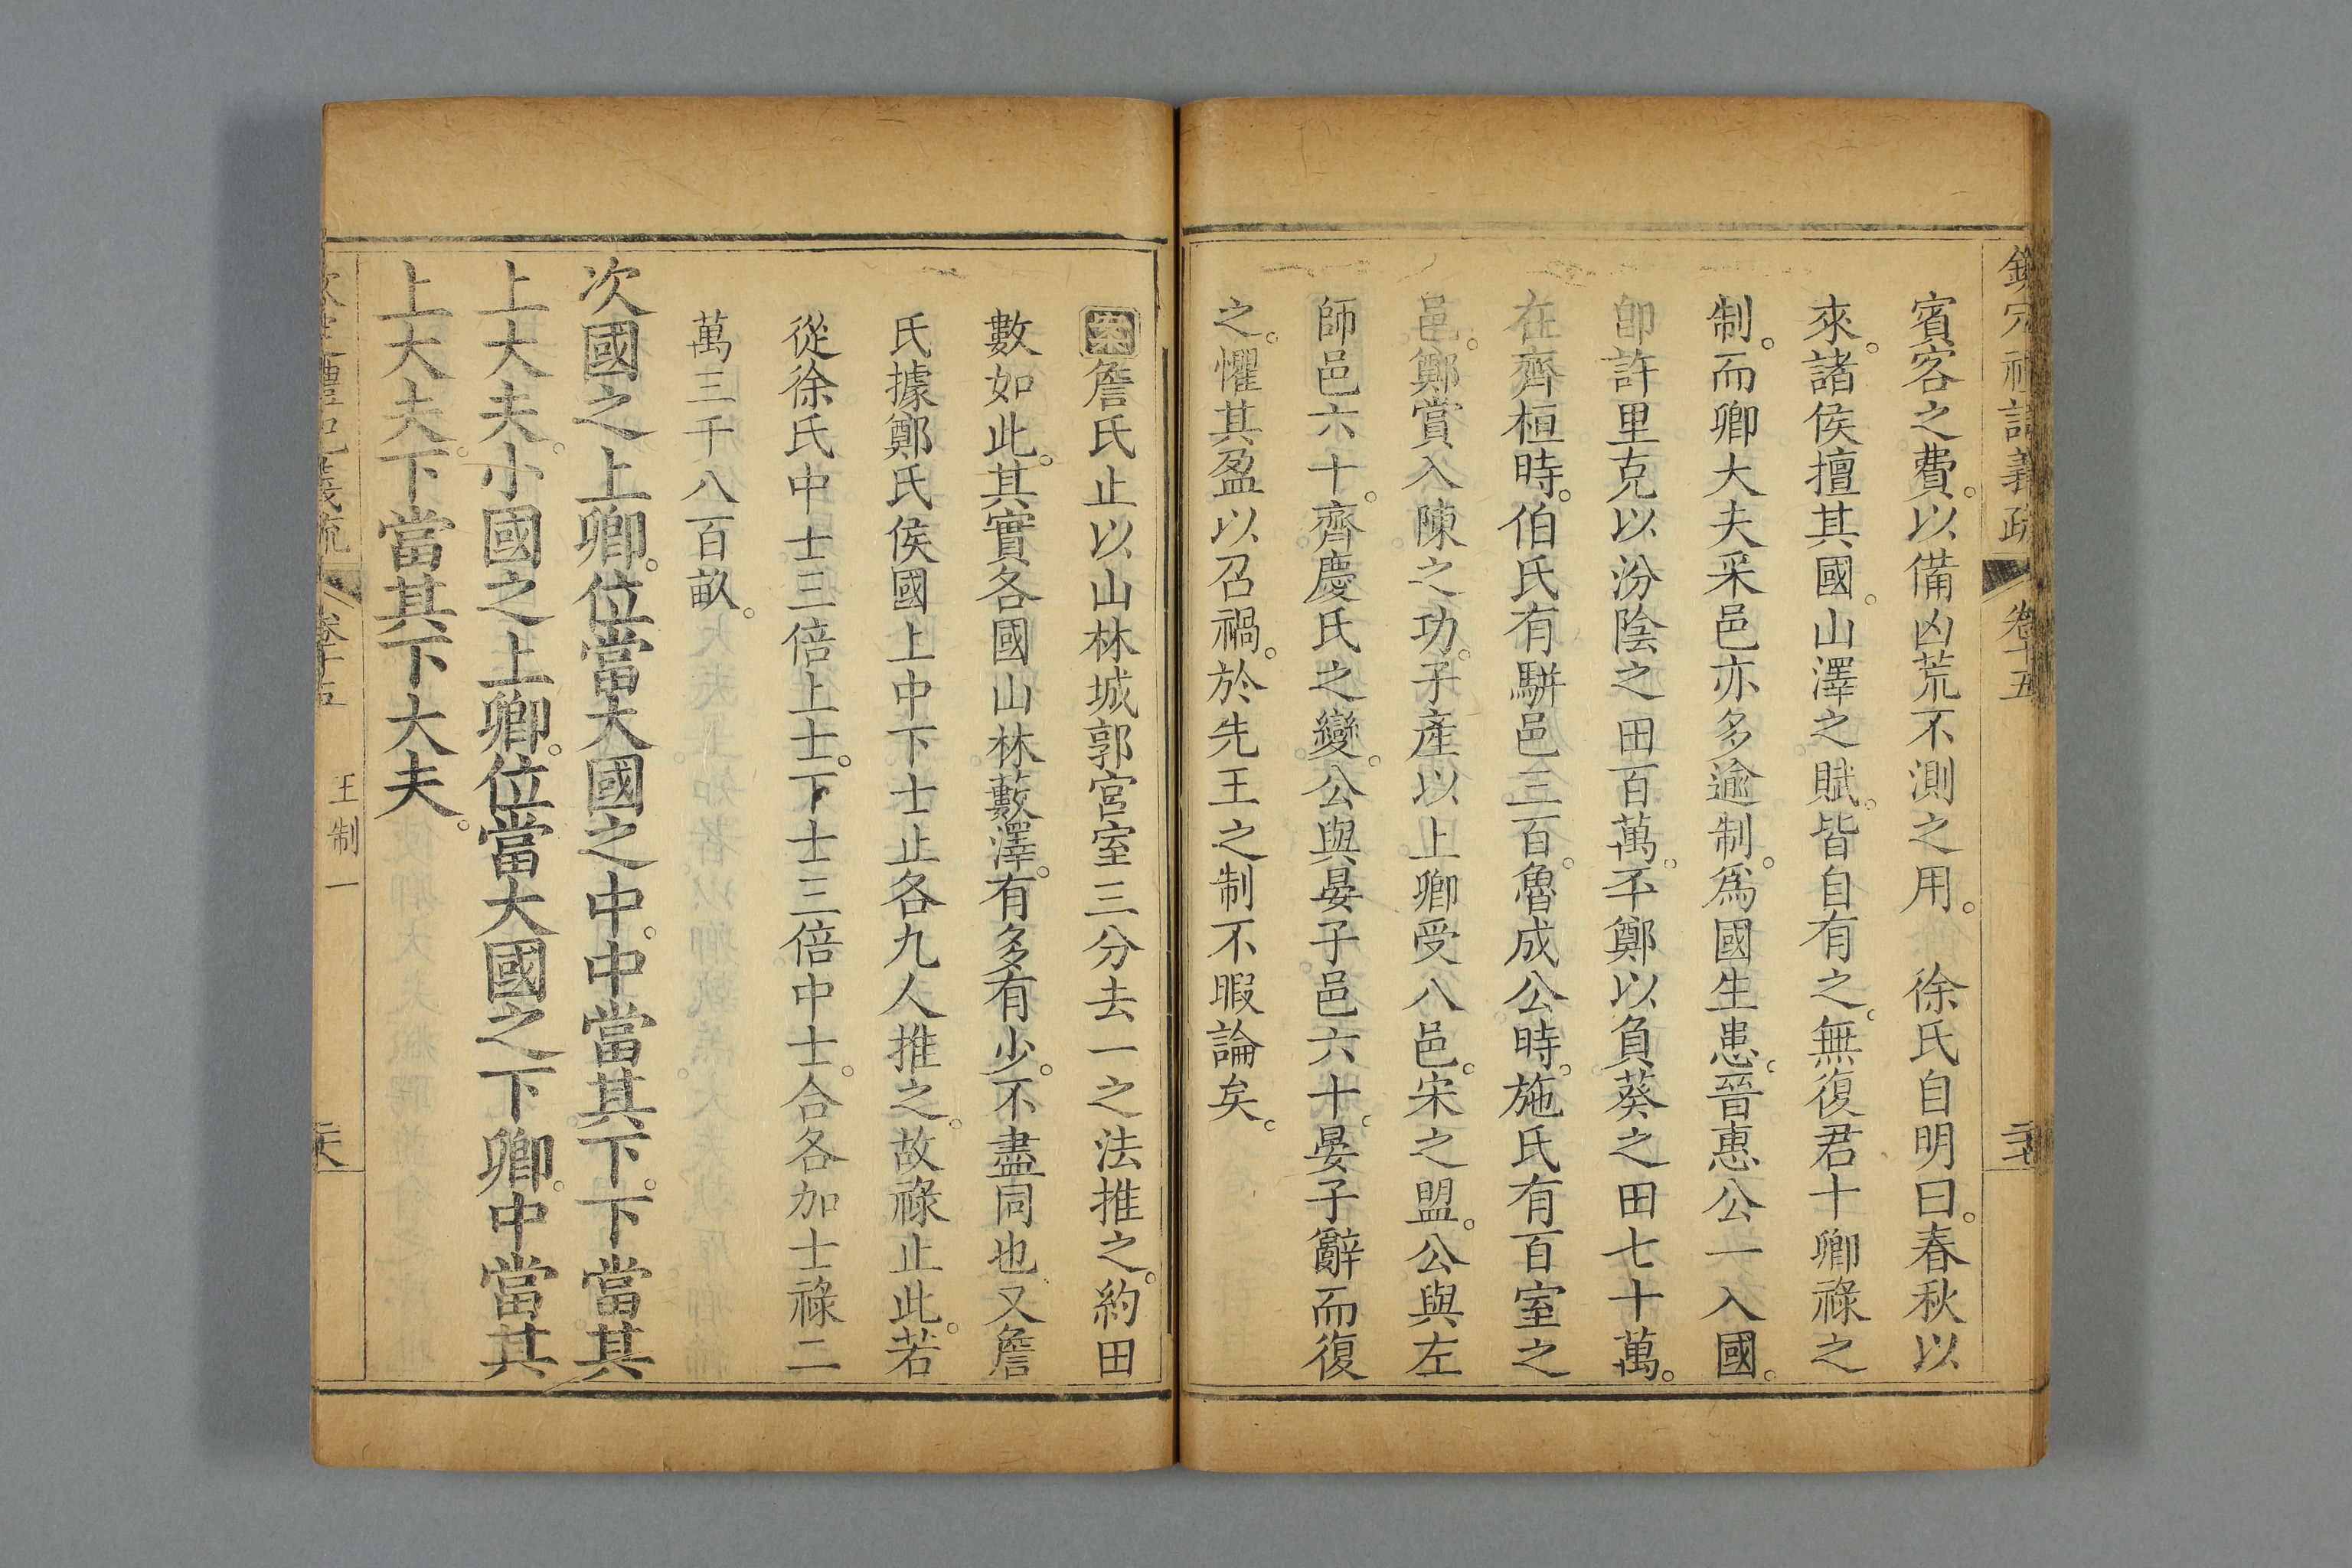 欽定禮記義疏 卷十五
賓客之費。以備凶荒不測之用。 徐氏自明曰。春秋以
來。諸侯擅其國。山澤之賦。皆自有之。無復君十卿祿之
制。而卿大夫采邑亦多逾制。爲國生患。晉惠公一入國。
卽許里克以汾陰之田百萬。丕鄭以負葵之田七十萬。
在齊桓時。伯氏有駢邑三百。魯成公時。施氏有百室之
邑。鄭賞入陳之功。子產以上卿受八邑。宋之盟。公與左
師邑六十。齊慶氏之變。公與晏子邑六十。晏子辭而復
之。懼其盈以召禍。於先王之制不暇論矣。
案詹氏止以山林城郭宮室三分去一之法推之。約田
數如此。其實各國山林藪澤。有多有少。不盡同也。又詹
氏據鄭氏侯國上中下士止各九人推之。故祿止此。若
從徐氏中士三倍上士。下士三倍中士。合各加士祿二
萬三千八百畝。
次國之上卿。位當大國之中。中當其下。下當其
上大夫。小國之上卿。位當大國之下卿。中當其
上大夫。下當其下大夫。
欽定禮記義疏 卷十五 王制一